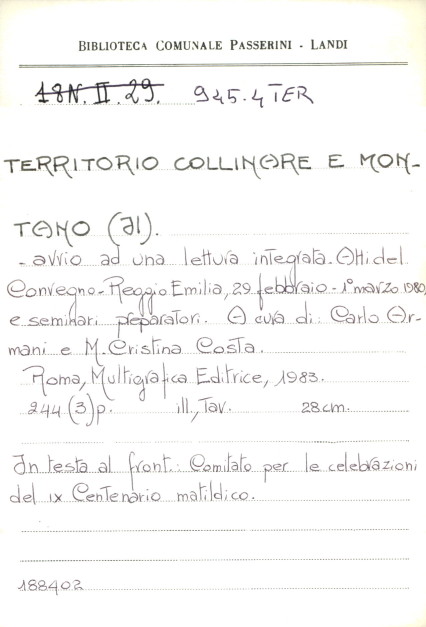 BIBLIOTECA COMUNALE PASSERINI - LANDI
18N. II. 29. 945.4 TER
TERRITORIO COLLINARE E MON-
TANO (Il).
- avvio ad una lettura integrata. Atti del
Convegno - Reggio Emilia, 29 febbraio - 1° marzo 1980,
e seminari preparatori. A cura di: Carlo Ar-
mani e M. Cristina Costa.
Roma, Multigrafica Editrice, 1983.
244 (3) p. ill., Tav. 28 cm.
In testa al front.: Comitato per le celebrazioni
del IX Centenario matildico.
188402